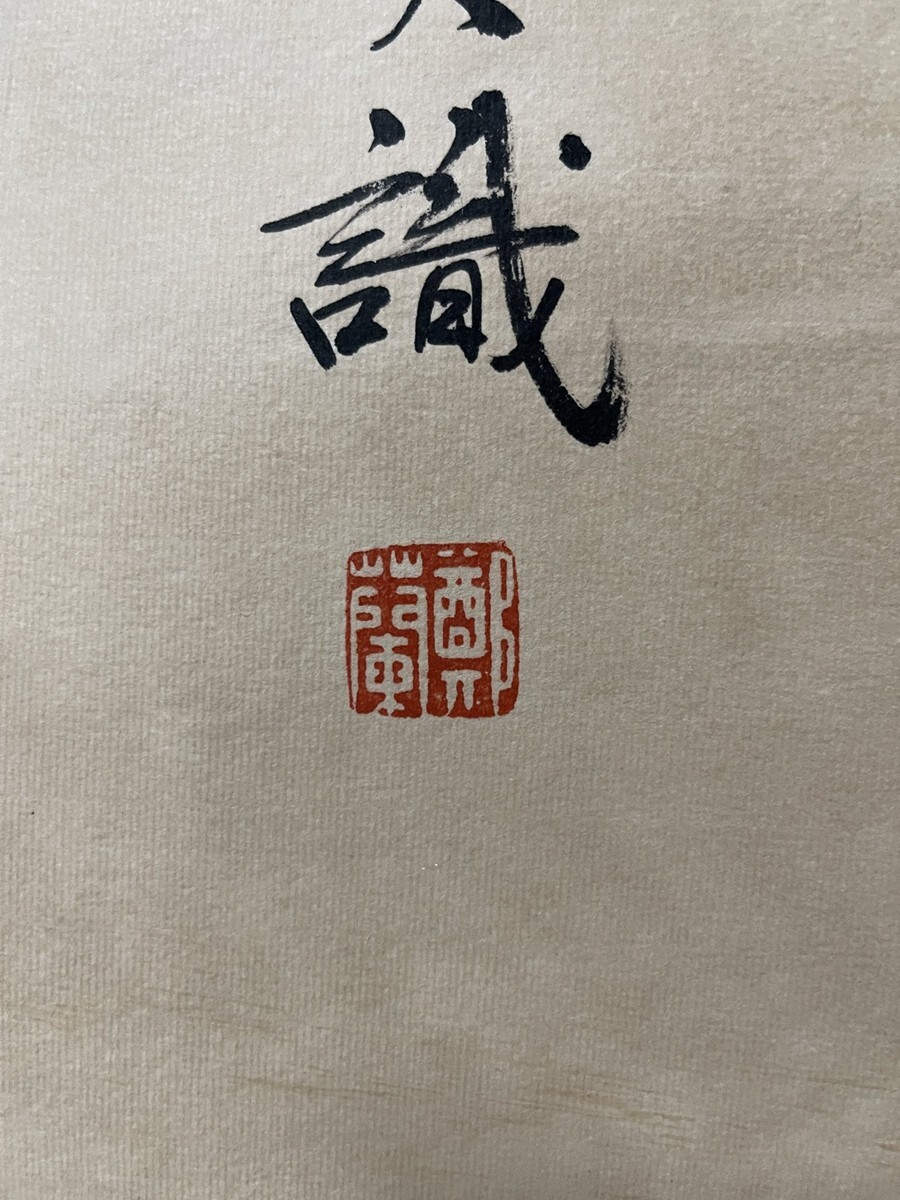 識
鄭蘭